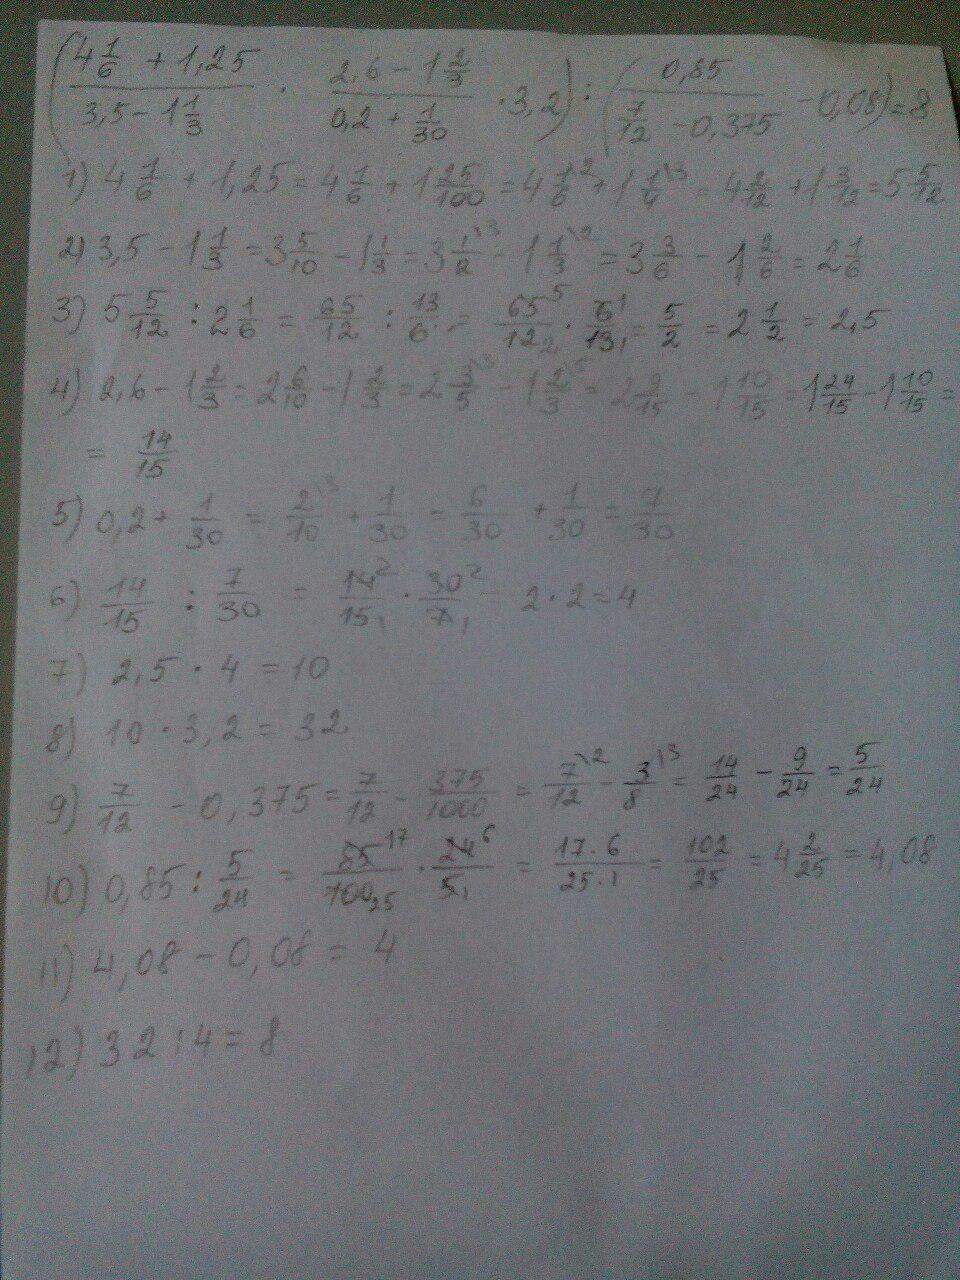 (4 1/6 + 1,25 / 3,5 - 1 1/3 · 2,6 - 1 2/3 / 0,2 + 1/30 · 3,2) : (0,85 / 7/12 - 0,375 - 0,08) = 8
1) 4 1/6 + 1,25 = 4 1/6 + 1 25/100 = 4 1/6\2 + 1 1/4\3 = 4 2/12 + 1 3/12 = 5 5/12
2) 3,5 - 1 1/3 = 3 5/10 - 1 1/3 = 3 1/2\3 - 1 1/3\2 = 3 3/6 - 1 2/6 = 2 1/6
3) 5 5/12 : 2 1/6 = 65/12 : 13/6 = 65 5/12 2 · 6 1/13 1 = 5/2 = 2 1/2 = 2,5
4) 2,6 - 1 2/3 = 2 6/10 - 1 2/3 = 2 3/5\3 - 1 2/3\5 = 2 9/15 - 1 10/15 = 1 24/15 - 1 10/15 =
= 14/15
5) 0,2 + 1/30 = 2/10\3 + 1/30 = 6/30 + 1/30 = 7/30
6) 14/15 : 7/30 = 14 2/15 1 · 30 2/7 1 = 2 · 2 = 4
7) 2,5 · 4 = 10
8) 10 · 3,2 = 32
9) 7/12 - 0,375 = 7/12 - 375/1000 = 7/12\2 - 3/8\3 = 14/24 - 9/24 = 5/24
10) 0,85 : 5/24 = 85 17/100 25 · 24 6/5 1 = 17 · 6/25 · 1 = 102/25 = 4 2/25 = 4,08
11) 4,08 - 0,08 = 4
12) 32 : 4 = 8